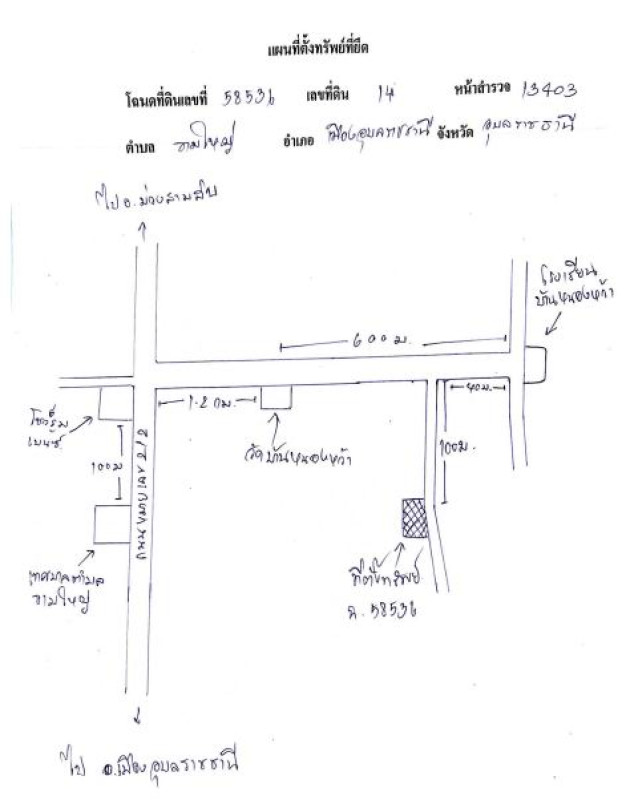 แผนที่ตั้งทรัพย์ที่ยึด
โฉนดที่ดินเลขที่ 58536 เลขที่ดิน 14 หน้าสำรวจ 13403
ตำบล ขามใหญ่ อำเภอ เมืองอุบลราชธานี จังหวัด อุบลราชธานี
ไป อ.ม่วงสามสิบ
โรงเรียน
บ้านหนองหว้า
600 ม.
1.2 กม.
40 ม.
โชว์รูม
เบนซ์
100 ม
ถนนหมายเลข 212
วัดบ้านหนองหว้า
100 ม.
เทศบาลตำบล
ขามใหญ่
ที่ตั้งทรัพย์
ฉ. 58536
ไป อ.เมืองอุบลราชธานี